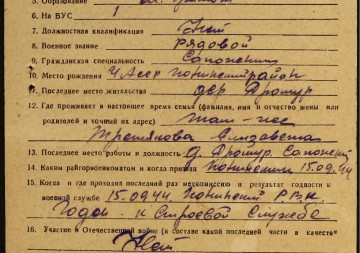 5. Образование
6. На ВУС 1
7. Должностная квалификация Нет
8. Военное звание рядовой
9. Гражданская специальность Сапожник
10. Место рождения
11. Последнее место жительства дер
12. Где проживает в настоящее время семья (фамилия, имя и отчество жены или
родителей и точный их адрес) там-же
Третьякова Елизавета
13. Последнее место работы и должность д. Сапожник
14. Каким райгорвоенкоматом и когда призван 15.09.44
15. Когда и где проходил последний раз медкомиссию и результат годности к
военной службе 15.09.44 РВК
Годен к строевой службе
16. Участие в Отечественной войне (в составе какой последней части в качестве
Нет